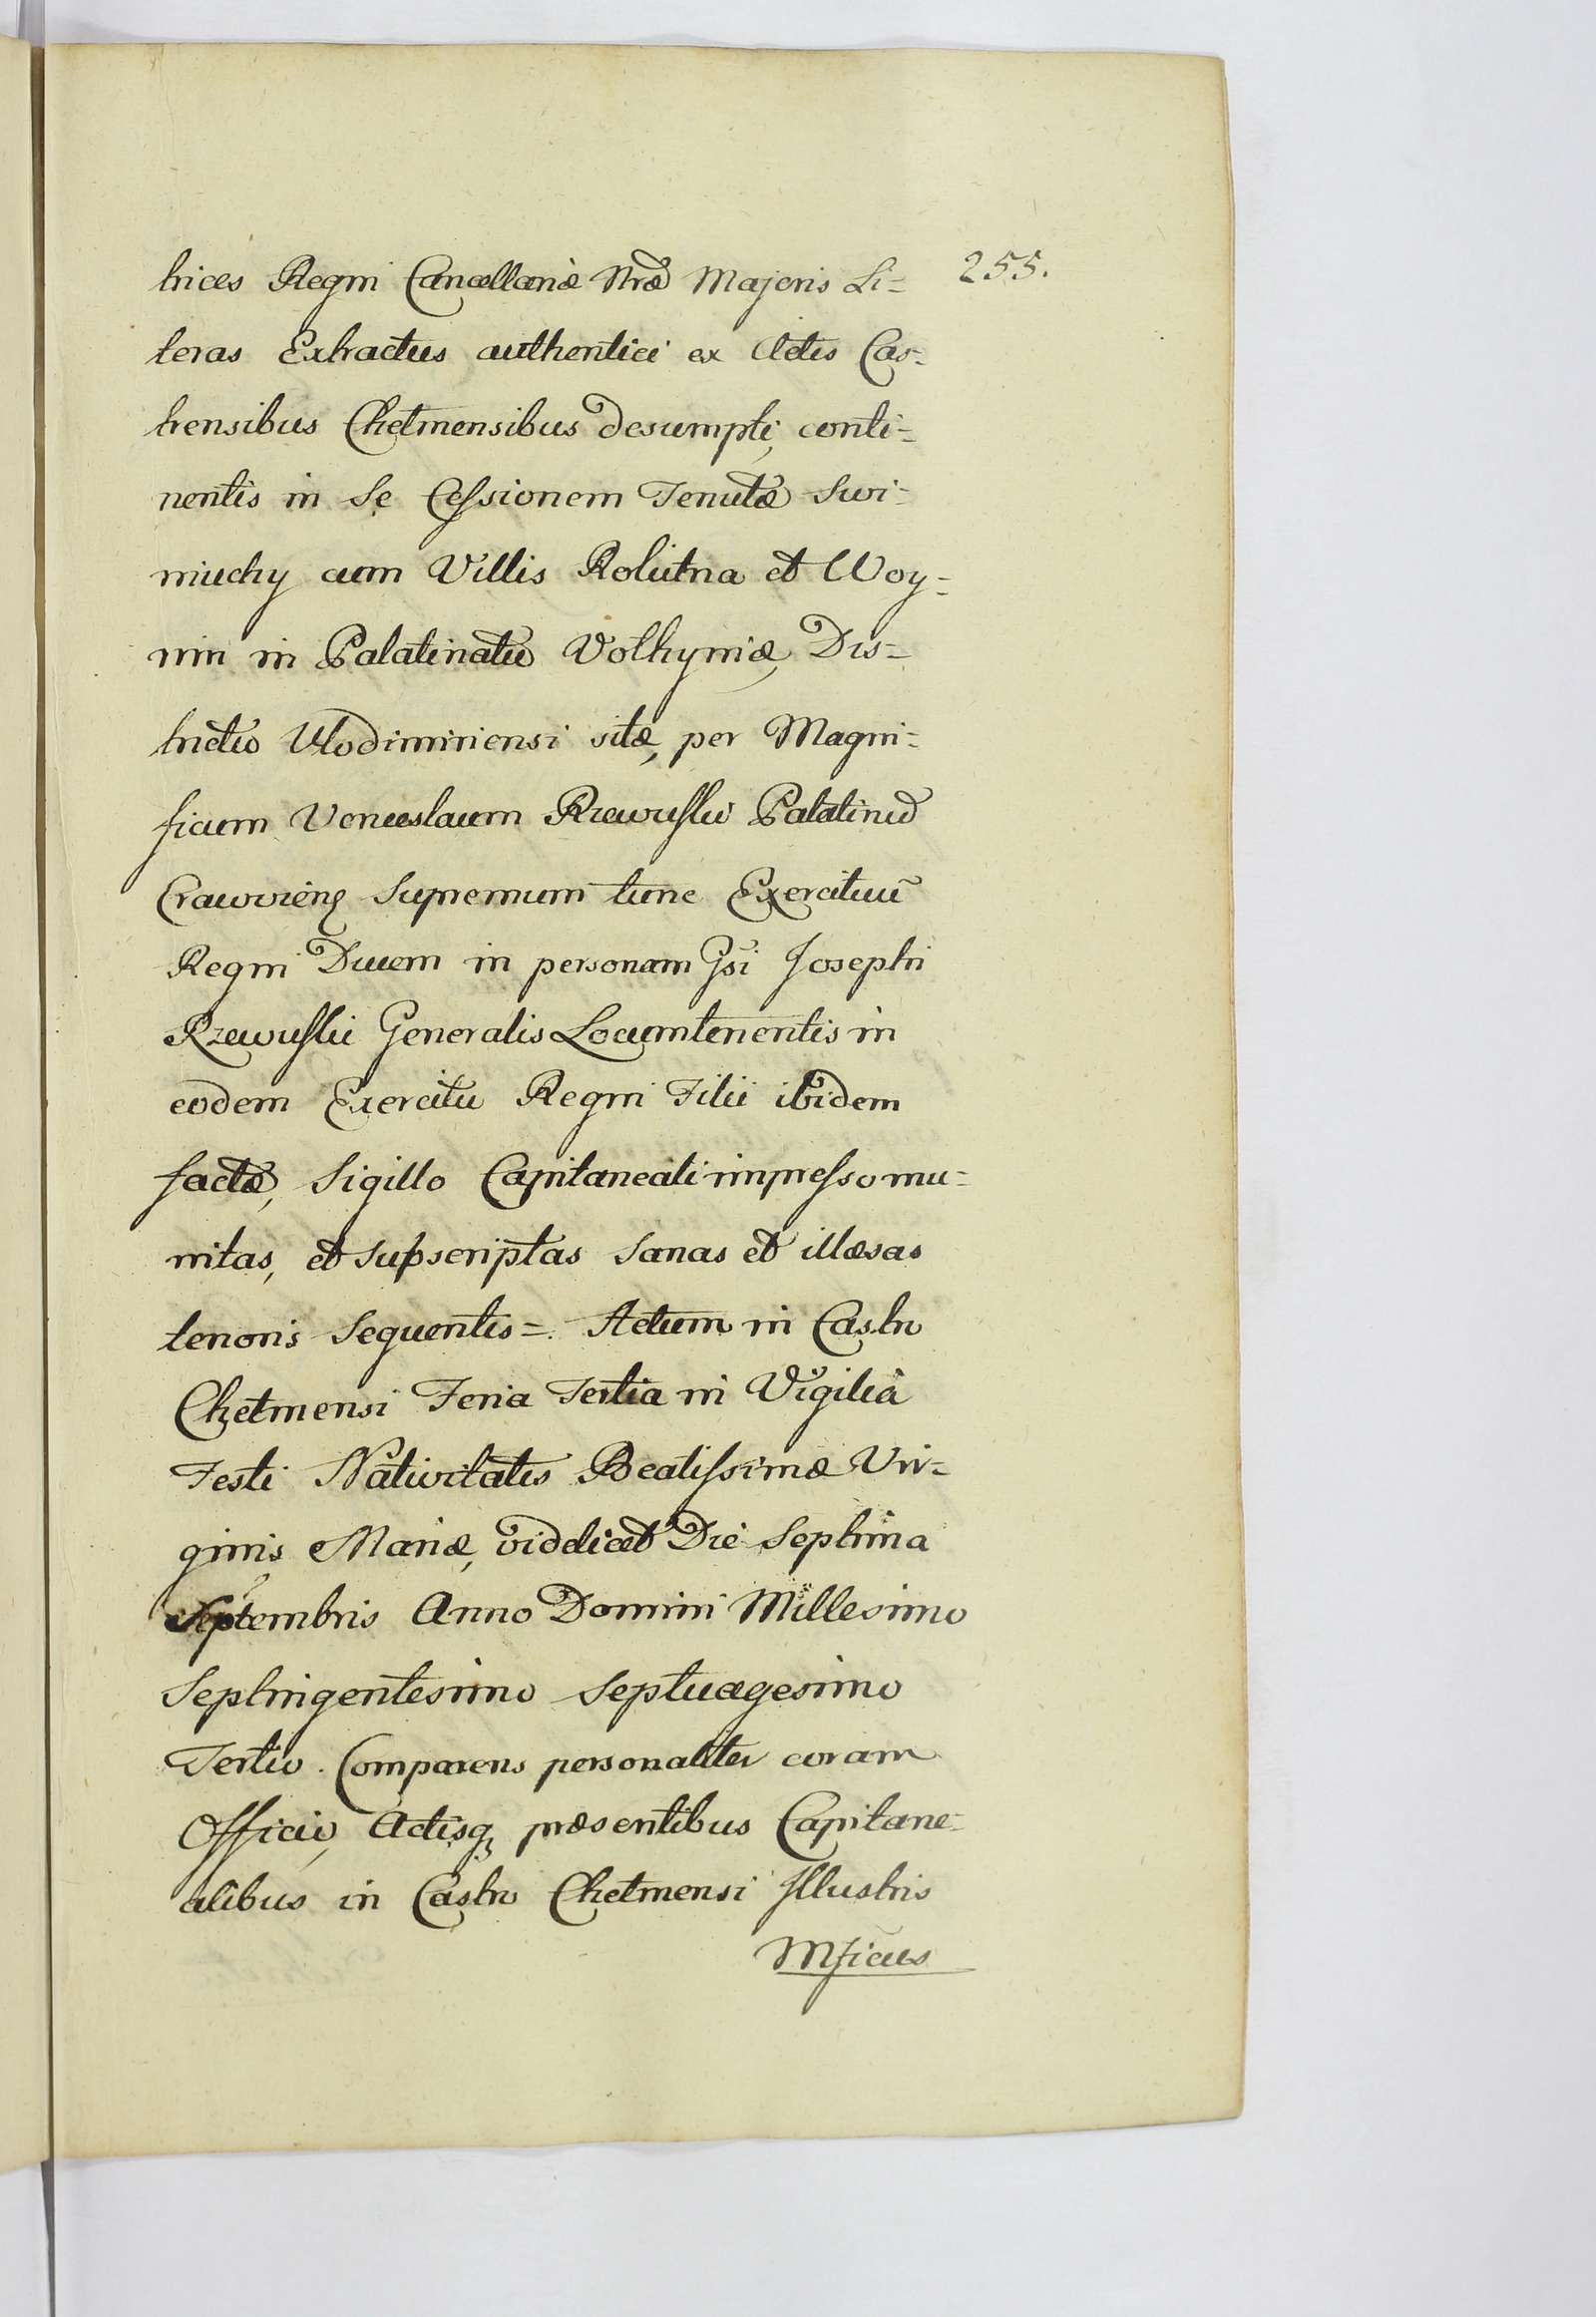 trices Regni Cancellariæ Nræ Majoris Li=
255.
teras Extractus authentici ex Actis Cas=
trensibus Chełmensibus desumpti, conti=
nentis in Se Cessionem Tenutæ Swi=
niuchy cum Villis Kolutna et Woy=
nin in Palatinatu Volhyniæ, Dis=
trictu Vlodimiriensi sitæ, per Magni=
ficum Venceslaum Rzewuski Palatinū
Cracovieñ Supremum tunc Exercituū
Regni Ducem in personam Gsi Josephi
Rzewuski Generalis Locumtenentis in
eodem Exercitu Regni Filii ibidem
factæ, Sigillo Capitaneali impresso mu=
nitas, et Subscriptas Sanas et illæsas
tenoris Sequentis =. Actum in Castro
Chełmensi Feria Tertia in Vigilia
Festi Nativitatis Beatissimæ Vir=
ginis Mariæ, videlicet Die Septima
Septembris Anno Domini Millesimo
Septingentesimo Septuagesimo
Tertio. Comparens personaliter coram
Officio, Actisq; præsentibus Capitane=
alibus in Castro Chełmensi Illustris
Mficus